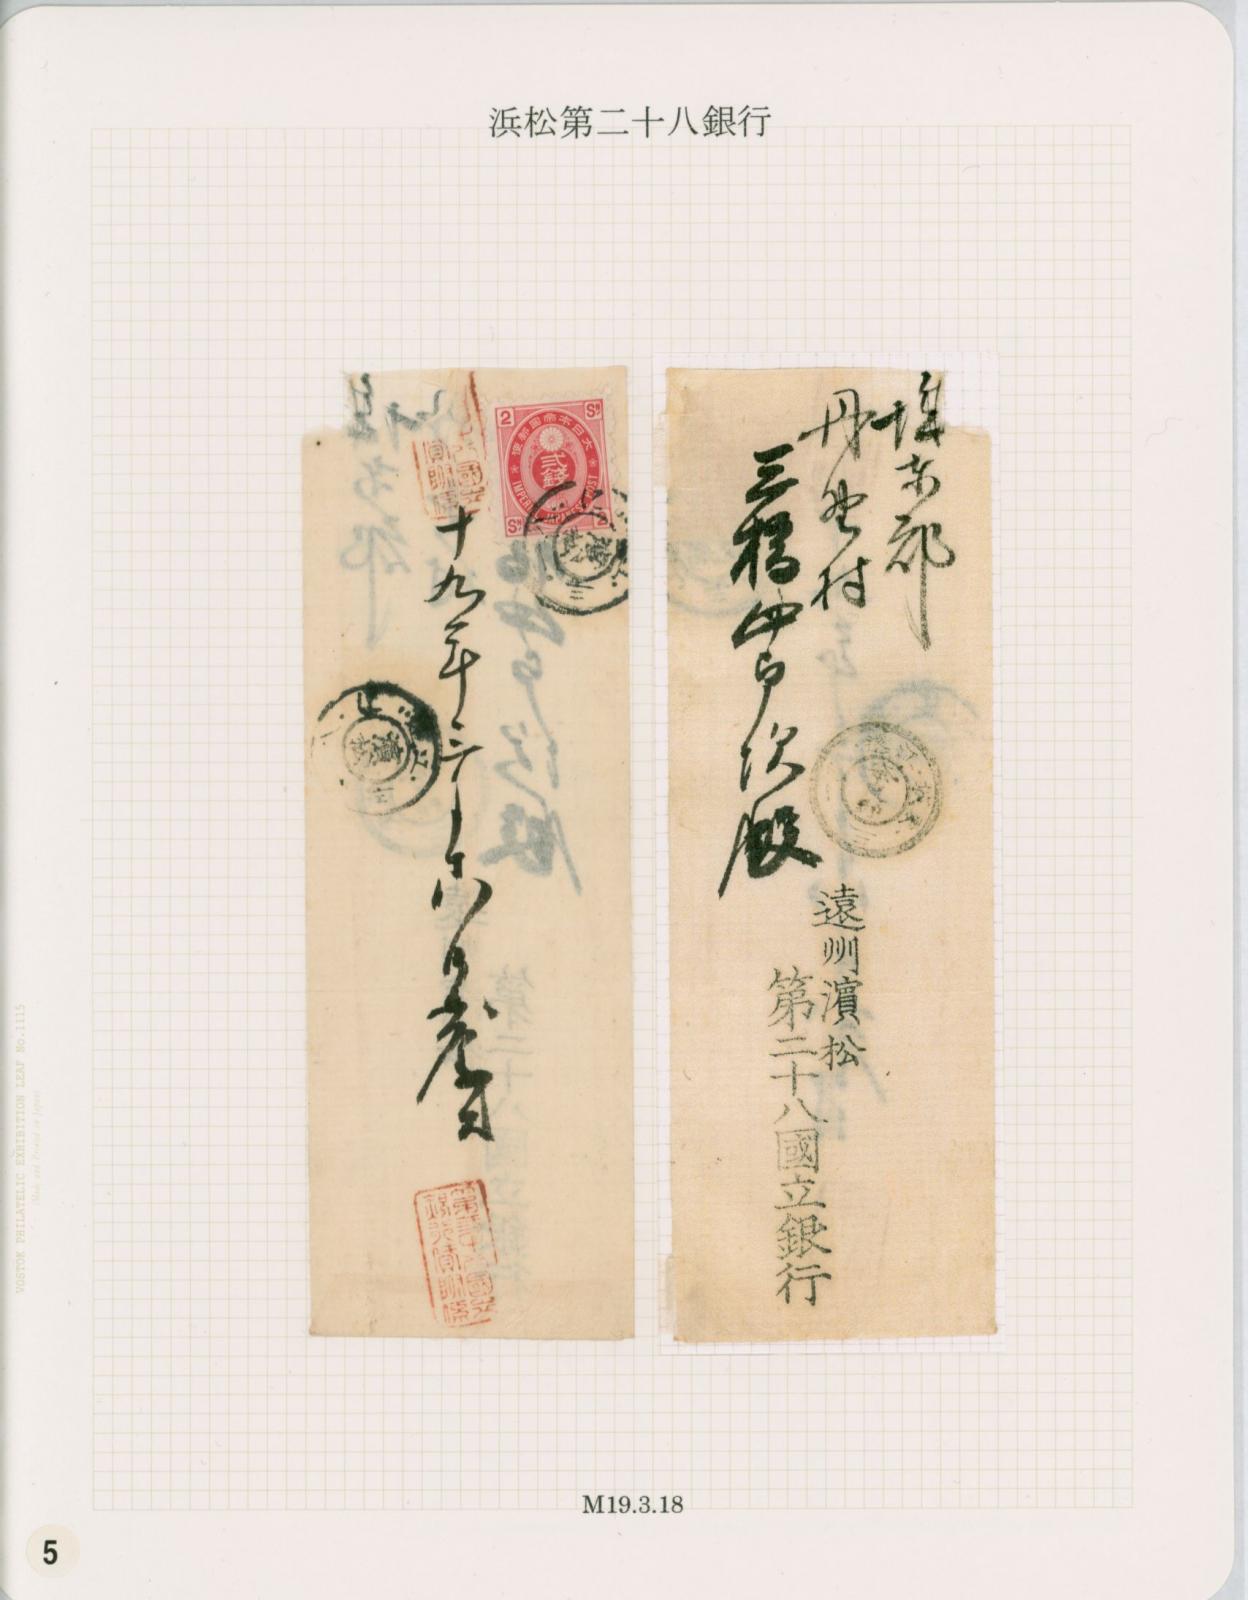 浜松第二十八銀行
城東郡
丹野村
三橋四郎次殿
遠州濱松
第二十八國立銀行
2 Sn
大日本帝國郵便
貳錢
IMPERIAL JAPANESE POST
Sn 2
十九年三月十八日
M19.3.18
5
VOSTOK PHILATELIC EXHIBITION LEAF No.1115
Made and Printed in Japan